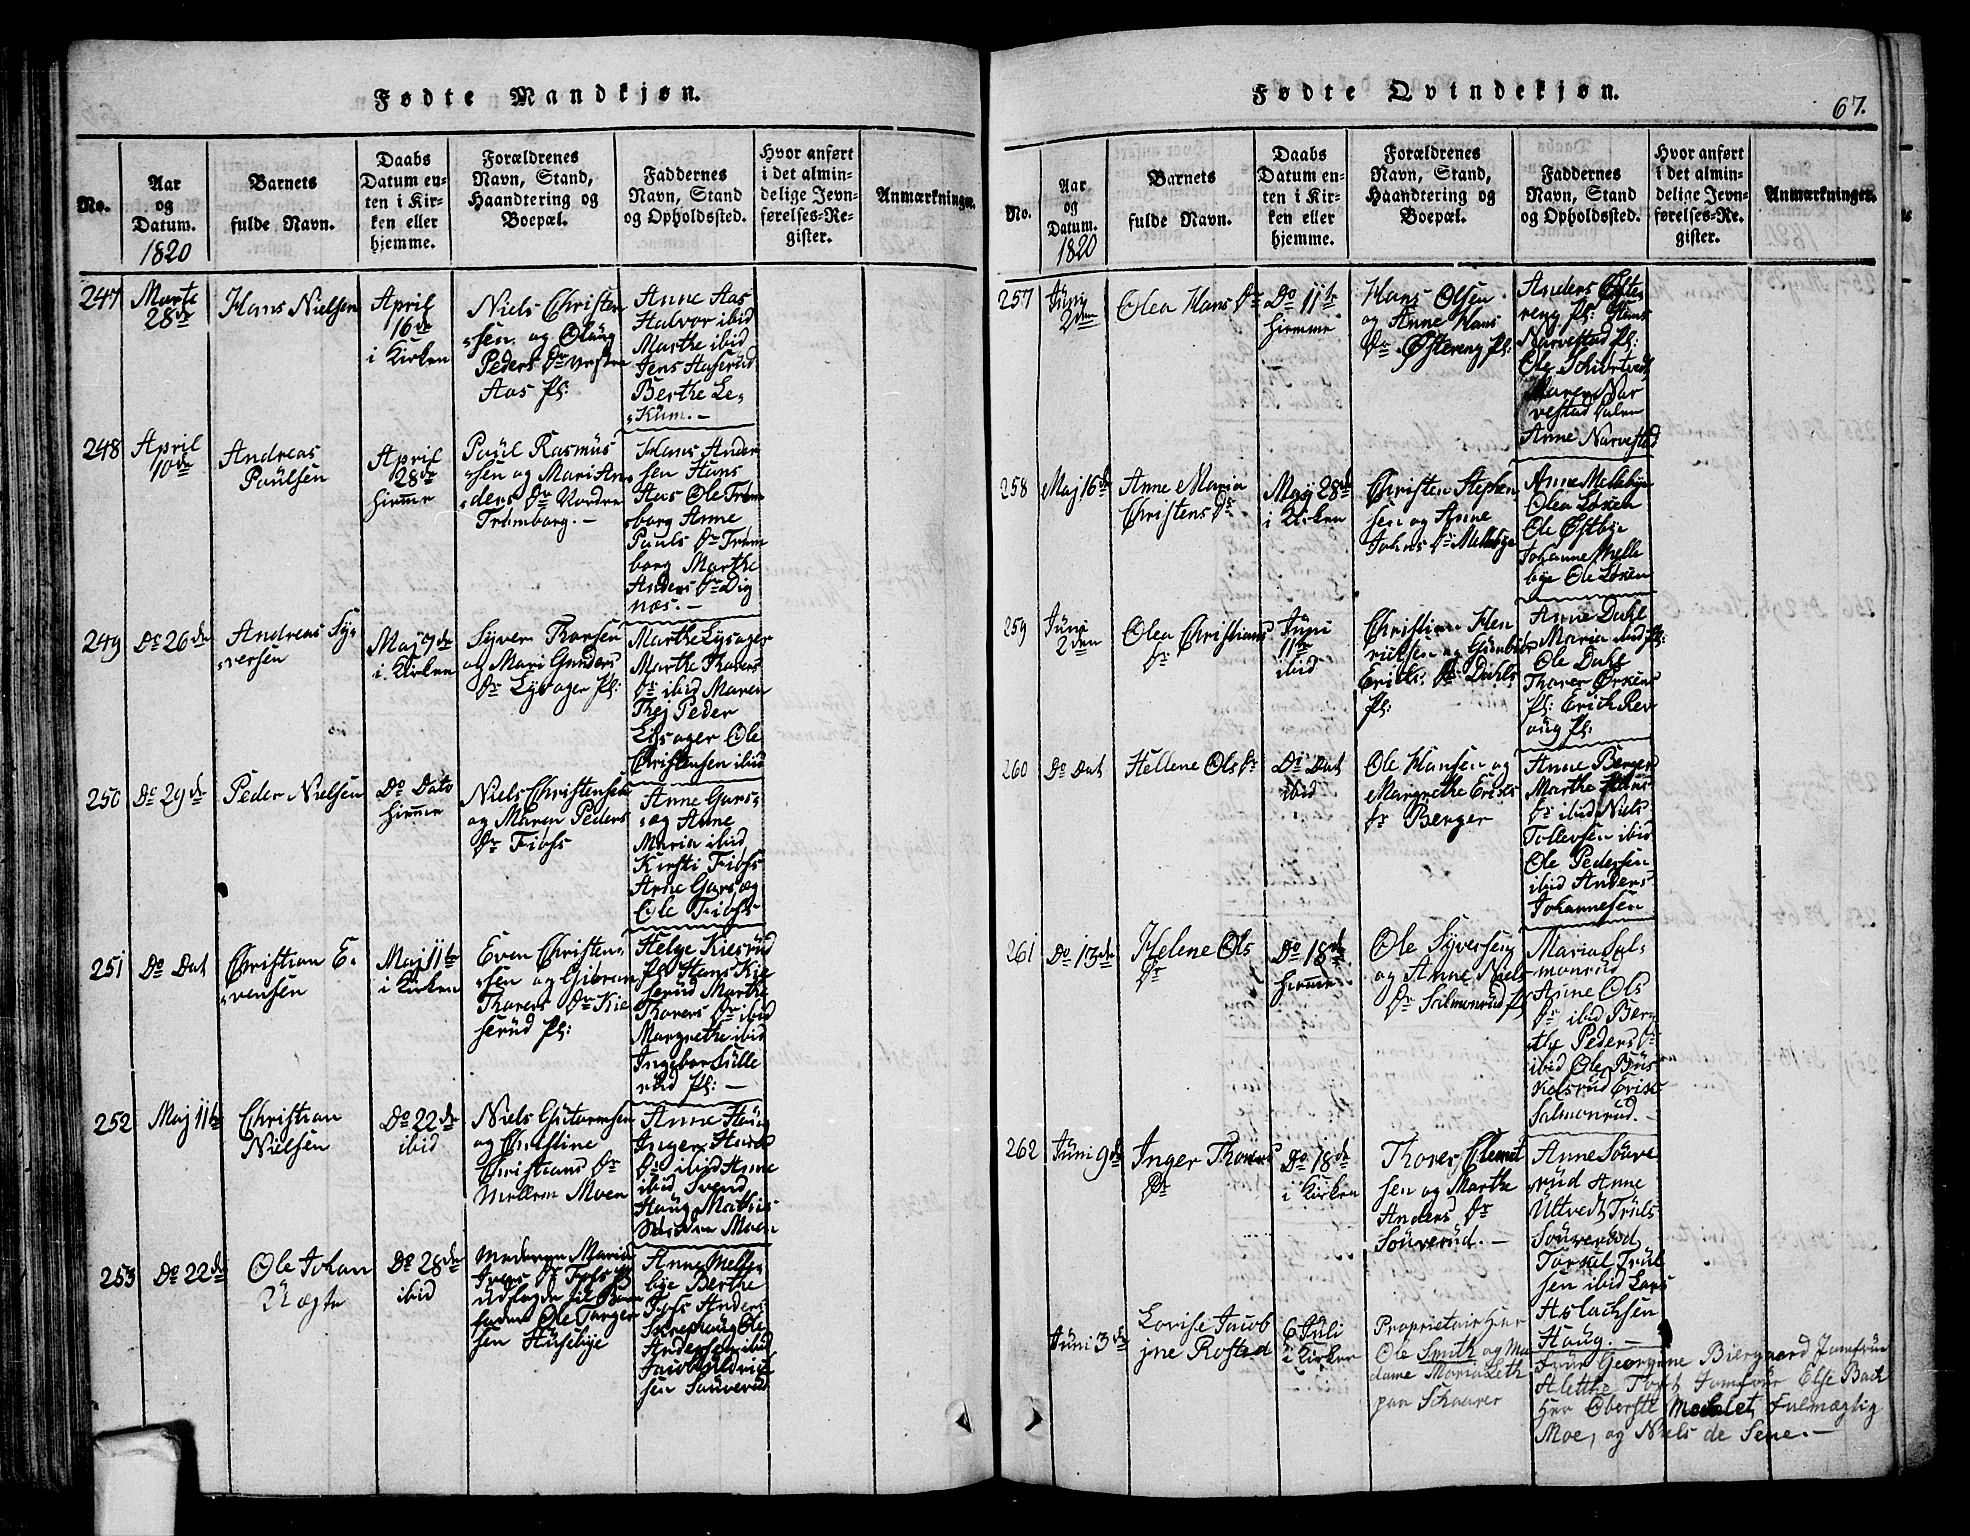 Fødte Mandkjøn.
No.
Aar
og
Datum.
1820
Barnets
fulde Navn.
Daabs
Datum en-
ten i Kir-
ken eller
hjemme.
Forældrenes
Navn, Stand,
Haandtering og
Boepæl.
Faddernes
Navn, Stand
og Opholdssted.
Hvor anført
i det almin-
delige Jevn-
førelses-Re-
gister.
Anmærkninger.
247
Marts
28de
Hans Nielsen
April
16de
i Kirken
Niels Christen
sen og Oläug
Peders Dr
Aas Pl:
Anne Aas
Halvor ibid
Marthe ibid
Jens Haserüd
Berthe Le-
küm.-
248
April
10de
Andreas
Paülsen
April
28de
hiemme
Paül Rasmüs
sen og Mari An
ders Dr Nordre
Trømborg.-
Hans Ander
sen Hans
Aas Ole Trøm
borg Anne
Pauls Dr Trøm
borg Marthe
Anders Dr Dig
næs.-
249
Do 26de
Andreas Sÿ-
versen
Maj 7de
i Kirken
Syver Thorsen
og Mari Gunders
Dr Lysager Pl:
Marthe Lysager
Marthe Thorers
Dr ibid Maren
Thej Peder
Lysager Ole
Christensen ibid
250
Do 29de
Peder Nielsen
Do Dato
hiemme
Niels Christensen
og Maren Peders
Dr Fiøss
Anne Gars-
eg Anne
Maria ibid
Kirsti Fiøss
Arne Garsæg
Ole Fiøss
251
Do Dat
Christian E-
vensen
Maj 11te
i Kirken
Even Christen-
sen og Giøran
Thorers Dr Kie
serüd Pl:
Helge Kieserüd
Pl: Hans Kie
serüd Marthe
Thorers Dr ibid
Margrethe ibid
Ingebor Sülle
rüd Pl: -
252
Maj 11te
Christian
Nielsen
Do 22de
ibid
Niels Gütormsen
og Christine
Christians Dr
Mellem Moen
Anne Haüg
Inger Hans
Dr ibid Anne
ibid Svend
Haüg Mathis
Moen
253
Do 22de
Ole Johan
Uægte
Do 28de
ibid
Moderen Maria
Ivers Dr Foss Pl
udlagde til Barn
fader Ole Torger
sen Hüsebye
Anne Melle-
bye Berthe
Foss Anders
Skrephaug Ole
Andersen ibid
Jacob
sen Souverüd
Fødte Qvindekjøn.
67.
No.
Aar
og
Datum.
1820
Barnets
fulde Navn.
Daabs
Datum en-
ten i Kir-
ken eller
hjemme.
Forældrenes
Navn, Stand,
Haandtering og
Boepæl.
Faddernes
Navn, Stand
og Opholdssted.
Hvor anført
i det almin-
delige Jevn-
førelses-Re-
gister.
Anmærkninger.
257
Jüni
2den
Olea Hans Dr
Do 11te
hiemme
Hans Olsen
og Anne Hans
Dr Østereng Pl:
Anders Øste
reng Pl: Hans
Narvestad Pl:
Ole
Maren Nar
vestad
Anne Narvestad
258
Maj 16de
Anne Maria
Christens Dr
Maÿ 28de
i Kirken
Christen Stephen
sen og Anne
Johns Dr Mellebye
Anne Mellebye
Olea Løken
Ole Østbye
Johanne Melle
bye Ole Løken
259
Jüni
2den
Olea Christians
Dr
Jüni
11te
ibid
Christian Hen
richsen og
Ericks Dr Dahls
Pl:
Anne Dahl
Maria ibid Pl:
Ole Dahl
Thorer Ørken
Pl: Erick Rev
oüg Pl:
260
Do Dat
Hellene Ols Dr
Do Dat
ibid
Ole Hansen og
Margrethe Ericks
Dr Berger
Anne Berger
Marthe Hans
Dr ibid Niels
Tollevsen ibid
Ole Pedersen
ibid Anders
Johannesen
261
Do 13de
Helene Ols
Dr
Do 18de
hiemme
Ole Syversen
og Anne Niels
Dr Salmonrüd Pl
Maria Sal-
monrüd
Anne Ols
Dr ibid Ber
the Peders Dr
ibid Ole Büs
kelsrud Erick
Salmonrüd.-
262
Jüni 9de
Inger Thorers
Dr
Do 18de
i Kirken
Thorer Clemet
sen og Marthe
Anders Dr
Soüverüd.-
Anne Soüve
rüd Anne
Ültvedt Trüls
Soüverüd
Torkel Trül
sen ibid Lars
Aslachsen
Haug.-
Jüni 3de
Lovise Jacob
jne Rosted
6 Juli
i Kirken
Proprietair Her
Ole Smith og Ma
dame Maria Leth
paa Skaarer
Frue Georgine Biergaard Jomfrue
Alethe Toft Jomfrue Else Bach
Her Oberstl Fulmægtig
Moe, og Niels de Sene.-